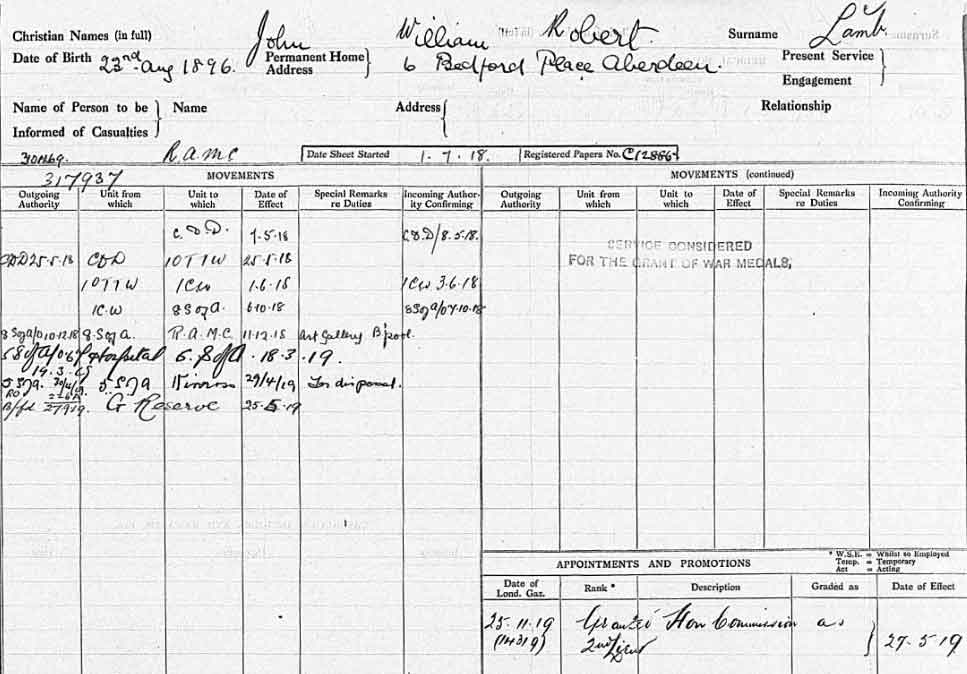 Christian Names (in full) John William Robert Surname Lamb
Date of Birth 23rd Aug 1896. Permanent Home Address 6 Bedford Place Aberdeen. Present Service
Engagement
Name of Person to be Informed of Casualties Name Address Relationship
R.A.M.C Date Sheet Started 1.7.18. Registered Papers No.
317937 MOVEMENTS MOVEMENTS (continued)
Outgoing Authority Unit from which Unit to which Date of Effect Special Remarks re Duties Incoming Authority Confirming Outgoing Authority Unit from which Unit to which Date of Effect Special Remarks re Duties Incoming Authority Confirming
C.D.D. 7-5-18 CDD/8.5.18.
CDD 25-5-18 CDD 10TTW 25-5-18
10TTW 1CW 1.6.18 1CW 3.6.18
1C.W 8SofA. 6.10.18 8SofA/07.10.18
8SofA/010.12.18 8.SofA. R.A.M.C. 11.12.18 Art Gallery B'pool.
Hospital 5.SofA. 18.3.19.
19.3.19
5SofA. 30/4/19 5SofA Kinross 29/4/19 For disposal.
27919. G Reserve 25.5.19
SERVICE CONSIDERED
FOR THE GRANT OF WAR MEDALS,
APPOINTMENTS AND PROMOTIONS
* W.S.E. = Whilst so Employed
Temp. = Temporary
Act = Acting
Date of Lond. Gaz. Rank * Description Graded as Date of Effect
25.11.19 Granted Hon Commission as
(14319) 2nd Lieut 27.5.19